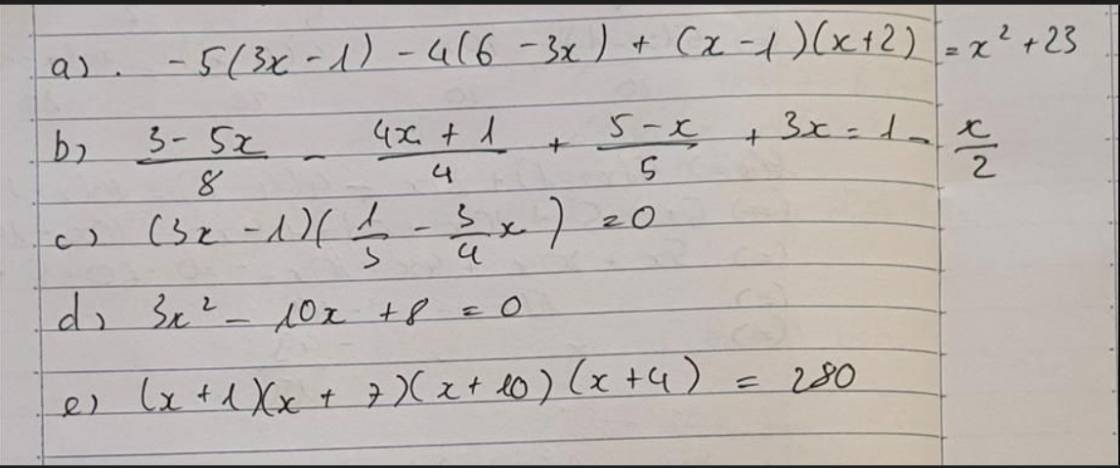 a) . -5(3x - 1) - 4(6 - 3x) + (x - 1)(x + 2) = x² + 23
b) (3 - 5x)/8 - (4x + 1)/4 + (5 - x)/5 + 3x = 1 - x/2
c) (3x - 1)(1/3 - 3/4 x) = 0
d) 3x² - 10x + 8 = 0
e) (x + 1)(x + 7)(x + 10)(x + 4) = 280